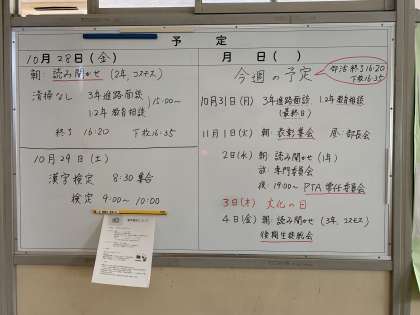 予定
10月28日(金)
朝:読み聞かせ(2年、コスモス)
清掃なし 3年進路面談
1.2年教育相談 15:00〜
終了 16:20 下校16:35
10月29日(土)
漢字検定 8:30集合
検定 9:00〜10:00
月 日( )
今週の予定
部活終了16:20
下校16:35
10月31日(月) 3年進路面談 1.2年教育相談
(最終日)
11月1日(火) 朝:表彰集会 昼:部長会
2日(水) 朝:読み聞かせ(1年)
放:専門委員会
夜:19:00〜 PTA常任委員会
3日(木) 文化の日
4日(金) 朝:読み聞かせ(3年、コスモス)
後期生徒総会